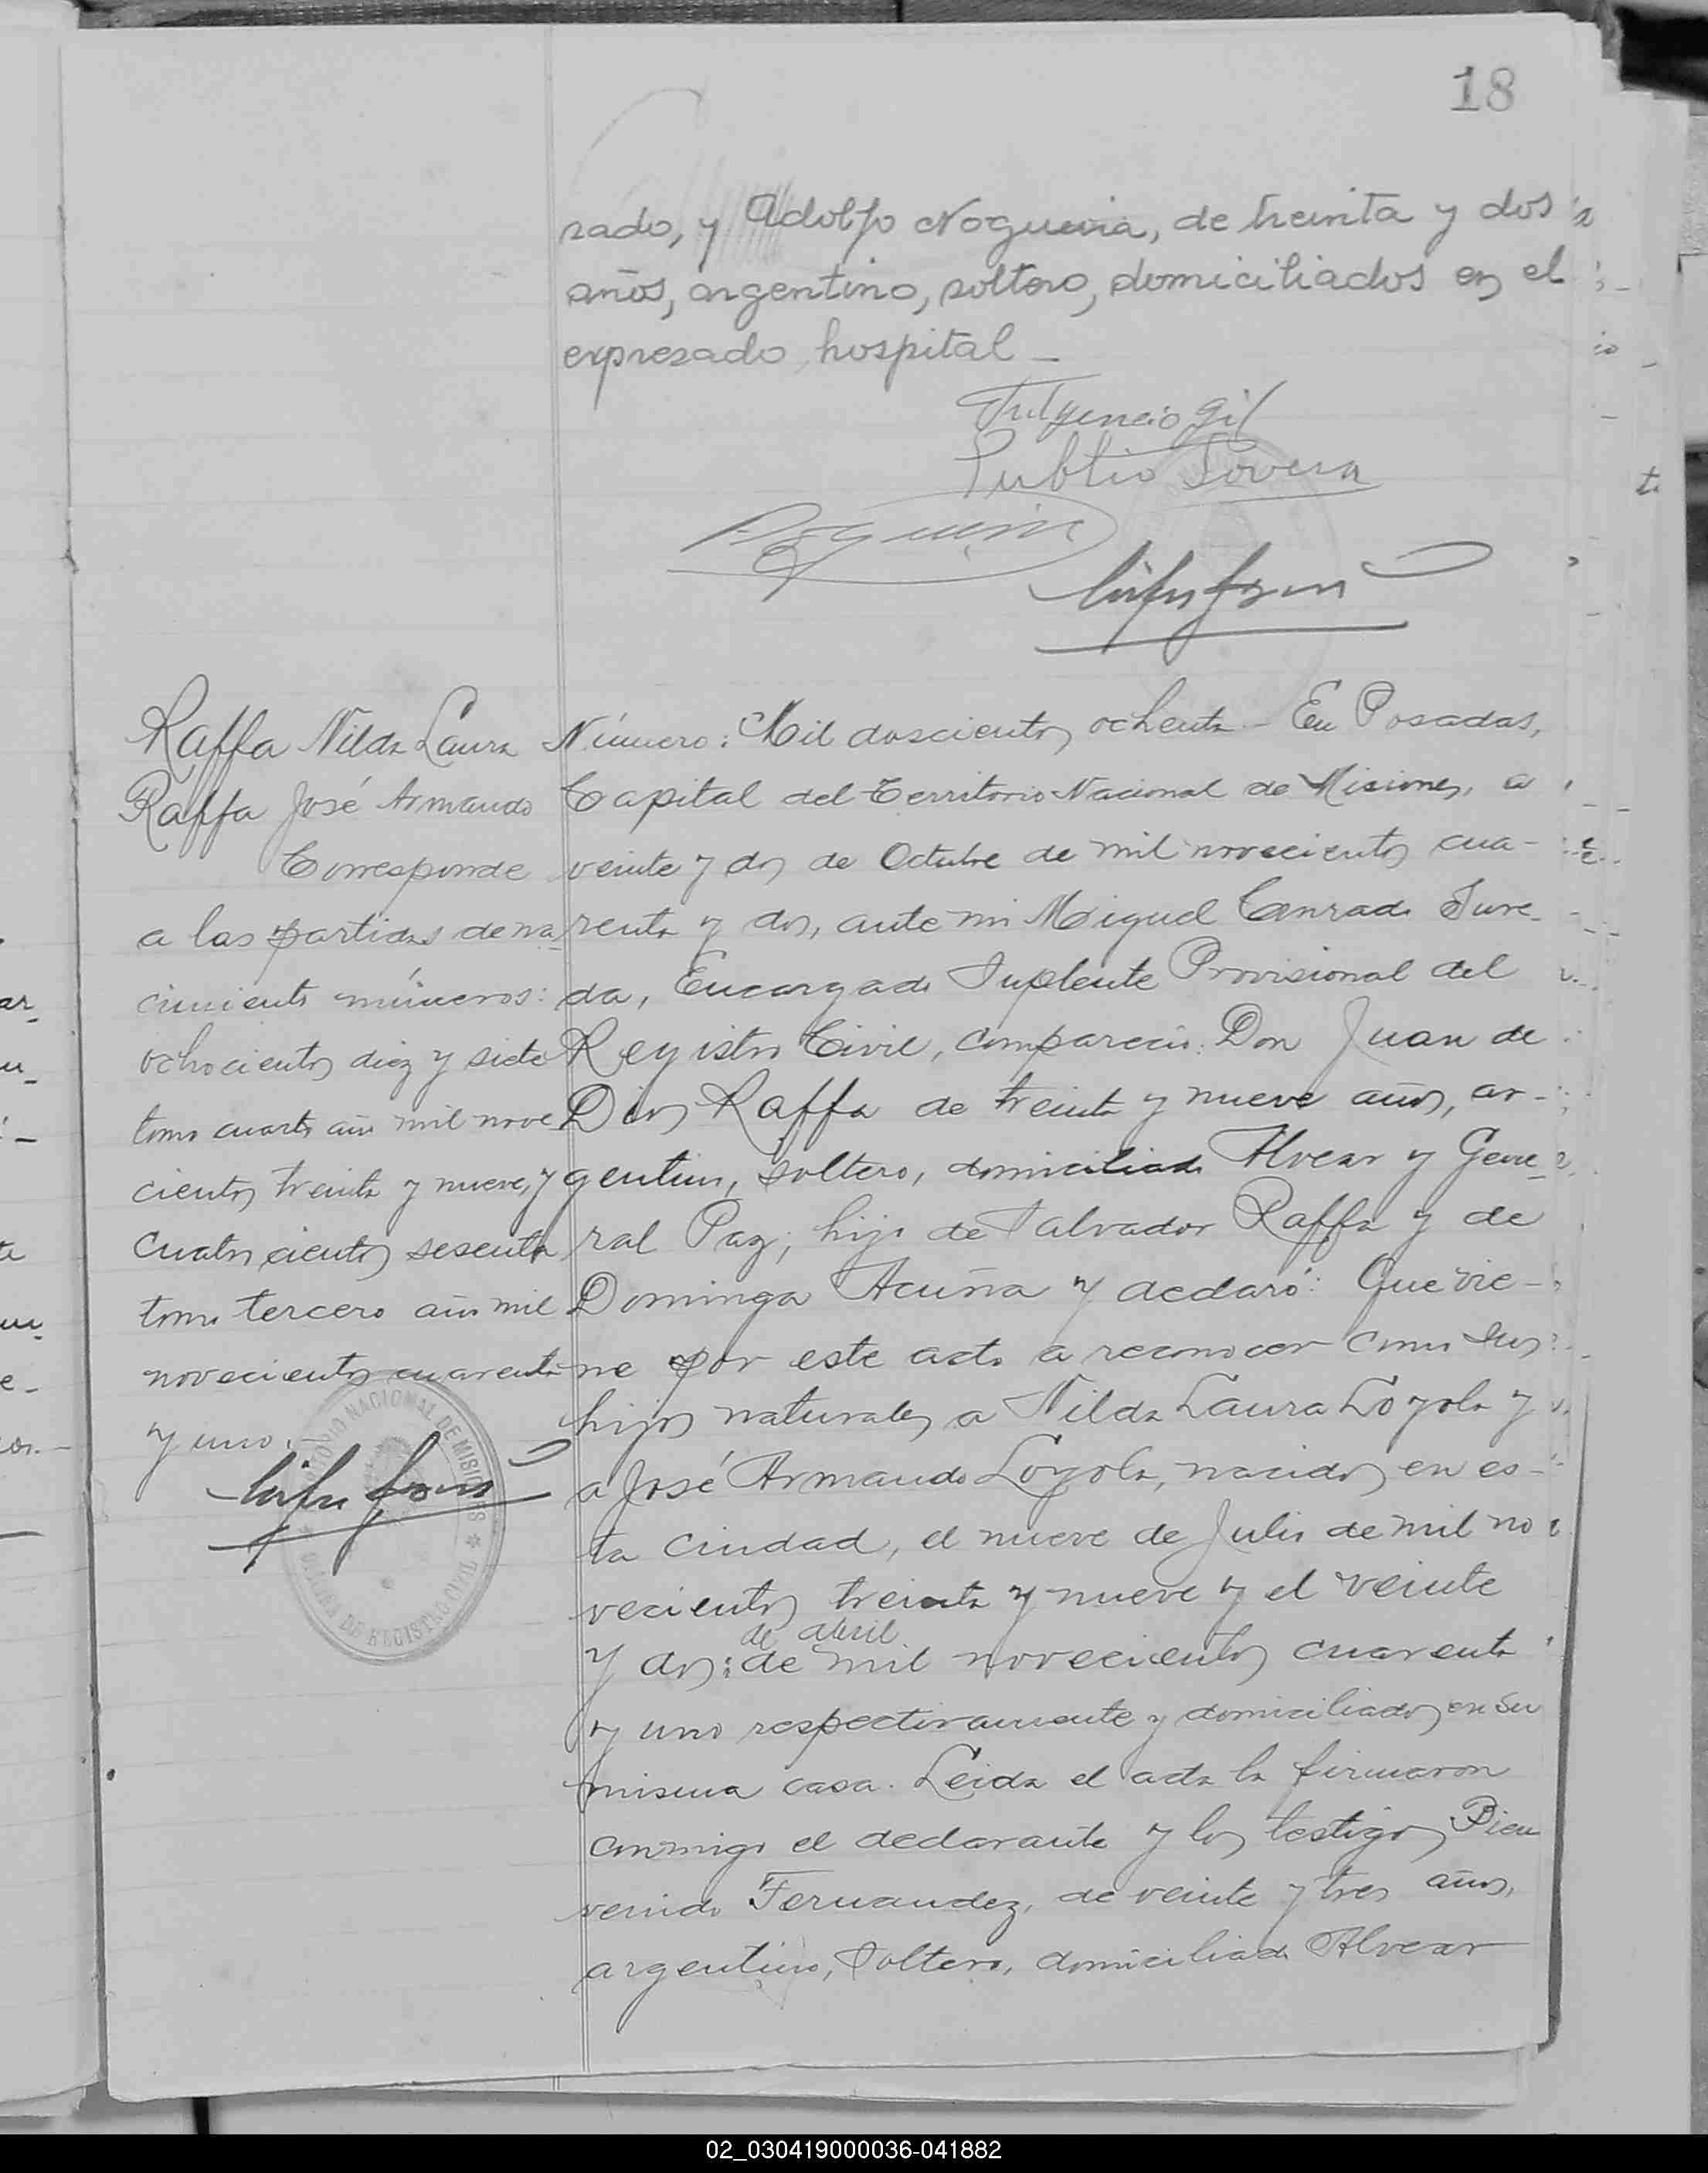 18
rado, y Adolfo Nogueira, de treinta y dos
años, argentino, soltero, domiciliados en el
expresado hospital -
Fulgencio Gil
Publio
Raffa Nilda Laura
Raffa José Armando
Corresponde
a las partidas de na-
cimiento números:
ochocientos diez y siete
tomo cuarto año mil nove
cientos treinta y nueve, y
cuatrocientos sesenta
tomo tercero año mil
novecientos cuarenta
y uno.-
TERRITORIO NACIONAL DE MISIONES
DE REGISTRO CIVIL
Número: Mil doscientos ochenta - En Posadas,
Capital del Territorio Nacional de Misiones, a
veinte y dos de Octubre de mil novecientos cua-
renta y dos, ante mi Miguel Conrado Jure-
da, Encargado Suplente Provisional del
Registro Civil, compareció: Don Juan de
Dios Raffa de treinta y nueve años, ar-
gentino, soltero, domiciliado Alvear y Gene-
ral Paz, hijo de Salvador Raffa y de
Dominga Acuña y declaró: Que vie-
ne por este acto a reconocer como sus
hijos naturales a Nilda Laura Loyola y
a José Armando Loyola, nacidos en es-
ta ciudad, el nueve de Julio de mil no
vecientos treinta y nueve y el veinte
de abril
y dos: de mil novecientos cuarenta
y uno respectivamente y domiciliados en su
misma casa. Leida el acta la firmaron
conmigo el declarante y los testigos Bien
venido Fernandez, de veinte y tres años,
argentino, soltero, domiciliado Alvear
02_030419000036-041882